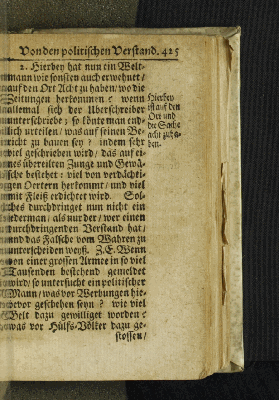 Von den politischen Verstand. 425
2. Hierbey hat nun ein Welt-
mann wie sonsten auch erwehnet /
auf den Ort Acht zu haben / wo die
Zeitungen herkommen: wenn
allemal sich der Uberschreiber
unterschriebe; so könte man end-
lich urteilen / was auf seinen Be-
richt zu bauen sey? indem sehr
viel geschrieben wird / das auf ei-
nes übereilten Zunge und Gewä-
sche bestehet: viel von verdächti-
gen Oertern herkommt / und viel
mit Fleiß erdichtet wird. Sol-
ches durchdringet nun nicht ein
iederman / als nur der / wer einen
durchdringenden Verstand hat /
und das Falsche vom Wahren zu
unterscheiden weyß. Z.E. Wenn
von einer grossen Armee in so viel
Tausenden bestehend gemeldet
wird / so untersucht ein politischer
Mann / was vor Werbungen hie-
bevor geschehen seyn? wie viel
Geld dazu gewilliget worden:
was vor Hülfs-Völker dazu ge-
stossen /
Hierbey
ist auf den
Ort und
die Sache
acht zu ha-
ben.